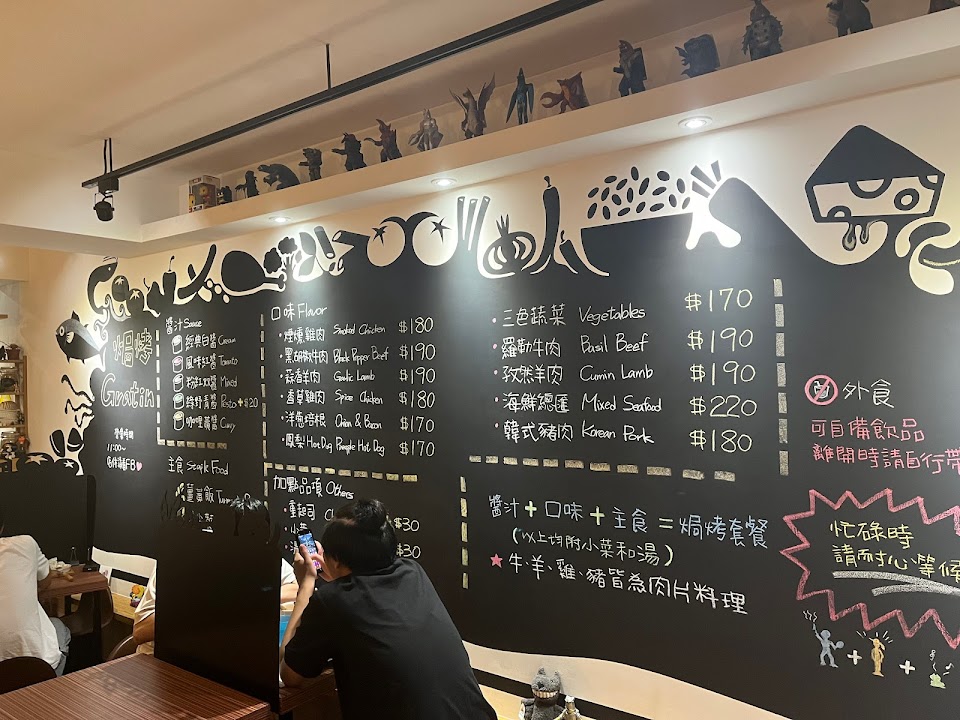 焗烤
Gratin
營業時間
11:00~
醬汁 Sauce
經典白醬 Cream
風味紅醬 Tomato
粉紅醬 Mixed
青醬 Pesto + $20
咖哩醬 Curry
主食 Staple Food
薑黃飯
口味 Flavor
・煙燻雞肉 Smoked Chicken $180
・黑胡椒牛肉 Black Pepper Beef $190
・蒜香羊肉 Garlic Lamb $190
・香草雞肉 Spice Chicken $180
・洋蔥培根 Onion & Bacon $170
・鳳梨Hot Dog Pineapple Hot Dog $170
加點品項 Others
・重起司
$30
$30
・三色蔬菜 Vegetables $170
・羅勒牛肉 Basil Beef $190
・孜然羊肉 Cumin Lamb $190
・海鮮總匯 Mixed Seafood $220
・韓式豬肉 Korean Pork $180
醬汁 + 口味 + 主食 = 焗烤套餐
(以上均附小菜和湯)
★牛、羊、雞、豬皆為肉片料理
外食
可自備飲品
離開時請自行帶
忙碌時
請耐心等候
+ +